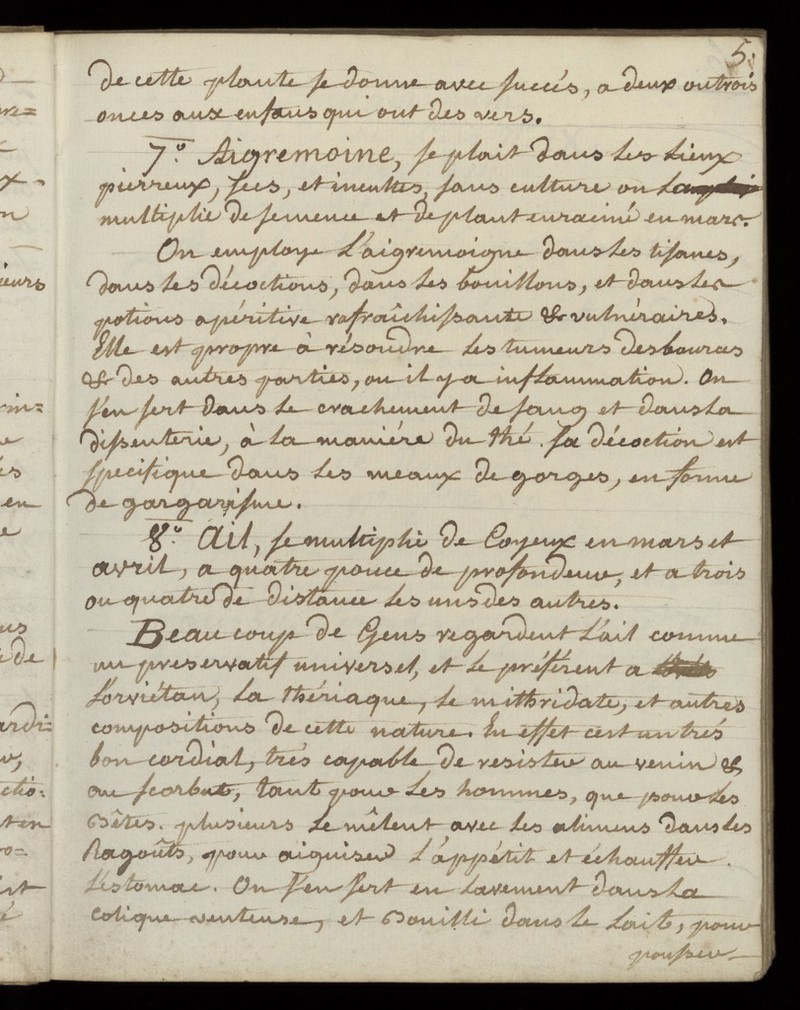 5.
de cette plante se donne avec succés, a deux ou trois
onces aux enfans qui ont des vers.
7.º Aigremoine, se plait dans les Lieux
pierreux, secs, et incultes, sans culture on
multiplie de semence et de plant enraciné en mars.
On employe L'aigremoigne dans les tisanes,
dans les décoctions, dans les bouillons, et dans les
potions apéritive rafraîchissante & vulnéraires.
Elle est propre à résoudre les tumeurs des bources
& des autres parties, ou il y a inflammation. On
s'en sert dans le crachement de sang et dans la
dissenterie, à la maniére du thé. sa décoction est
specifique dans les meaux de gorges, en forme
de gargarisme.
8.º Ail, se multiplie de Coyeux en mars et
avril, a quatre pouce de profondeur, et a trois
ou quatre de distance les uns des autres.
Beaucoup de Gens regardent L'ail comme
un preservatif universel, et le préférent a
L'orviétan, la thériaque, le mithridate, et autres
compositions de cette nature. En effet cest un trés
bon cordial, trés capable de resister au venin &
au scorbut, tant pour les hommes, que pour les
Bêtes. plusieurs le mêlent avec les alimens dans les
Ragoûts, pour aiguiser L'appétit et échauffer
L'estomac. On s'en sert en Lavement dans la
colique venteuse, et Bouilli dans le Lait, pour
pousser